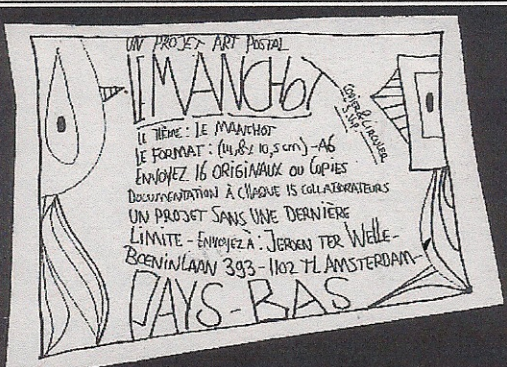 UN PROJET ART POSTAL
LE MANCHOT
COPIER & CIRCULER
S.V.P
LE THÈME : LE MANCHOT
LE FORMAT : (14,8 x 10,5 cm) - A6
ENVOYEZ 16 ORIGINAUX OU COPIES
DOCUMENTATION À CHAQUE 15 COLLABORATEURS
UN PROJET SANS UNE DERNIÈRE
LIMITE - ENVOYEZ À : JEROEN TER WELLE -
BOENINLAAN 393 - 1102 TL AMSTERDAM -
PAYS-BAS